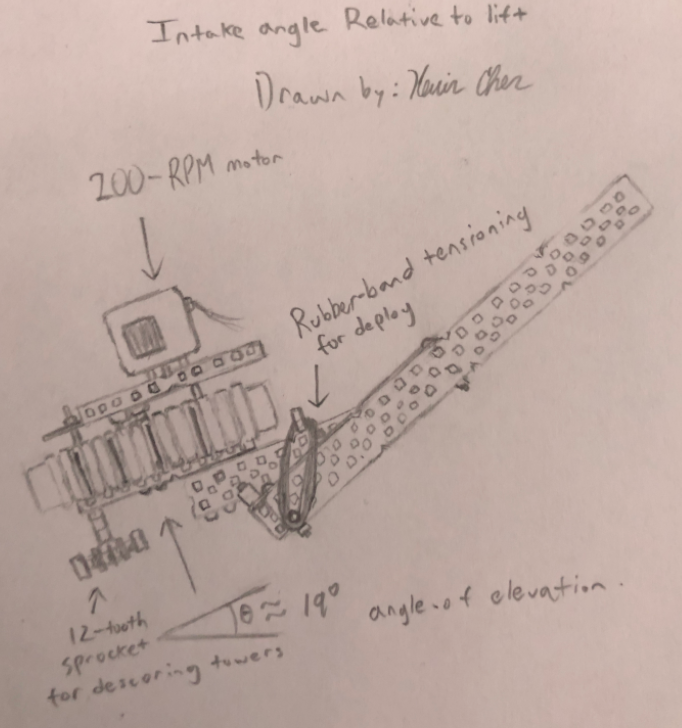 Intake angle Relative to lift
Drawn by: Kevin Chen
200-RPM motor
Rubber-band tensioning
for deploy
12-tooth
sprocket
for descoring towers
θ ≈ 19° angle of elevation.